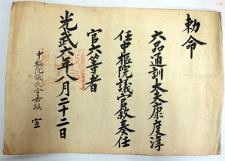 勅命
六品通訓大夫康度淳
任中樞院議官敍奏任
官六等者
光武六年八月二十二日
中樞院議長金嘉鎭 宣